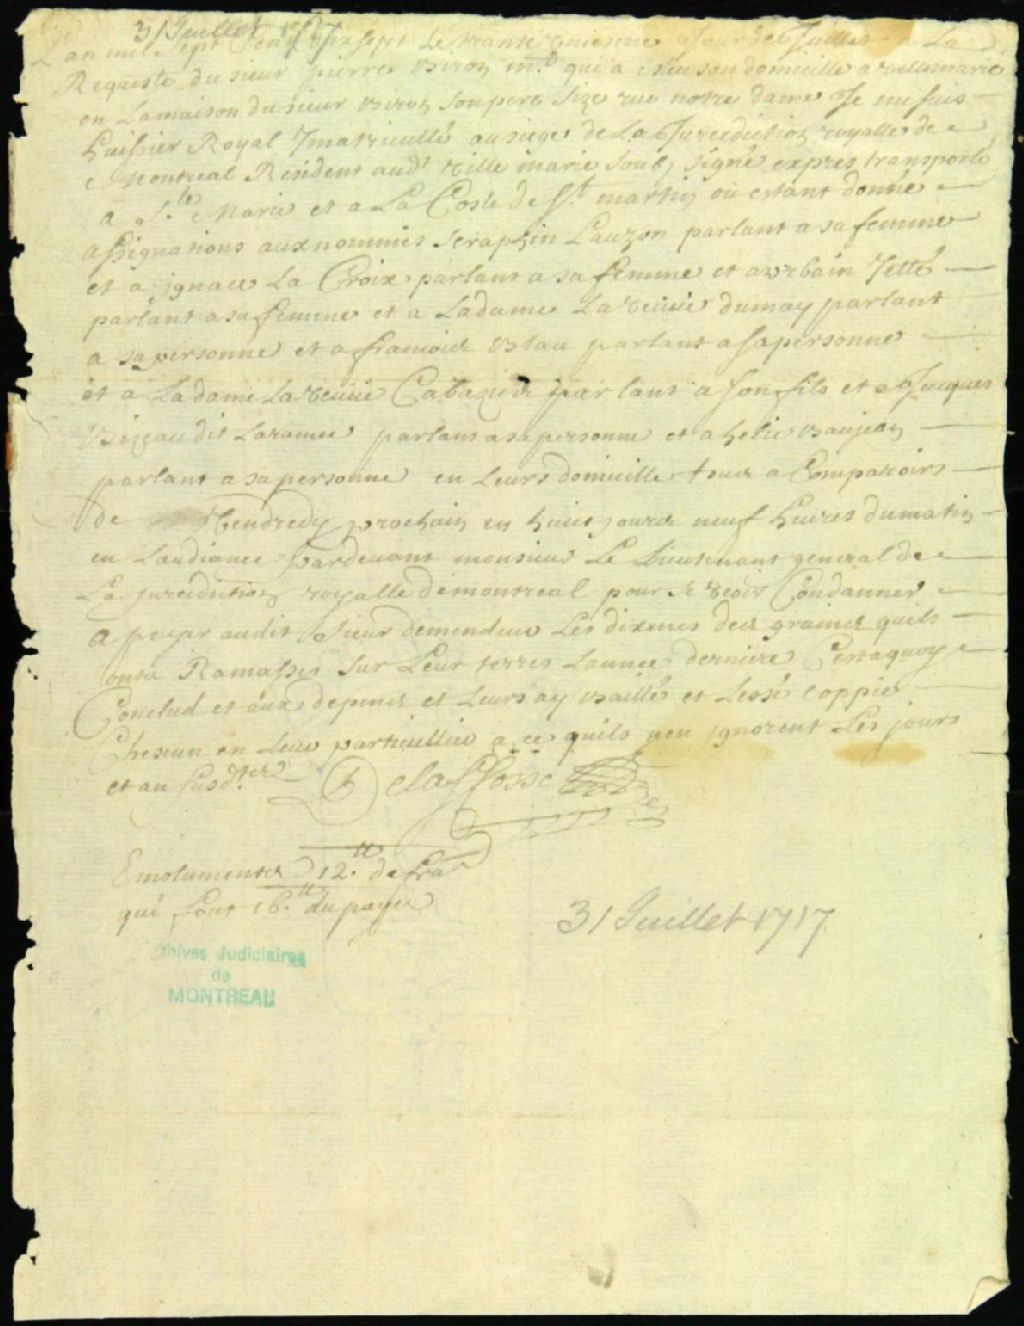 31 Juillet 1717
L'an mil sept Cent dix sept Le trante Unienme Jour de Juillet a La
Requeste du sieur pierre Biron m.d qui a Eslu son domicille a villemarie
en La maison du sieur Biron son pere size rue notre dame Je me suis
huissier Royal Jmatriculle au siege de La Jurediction royalle de
Montreal Resident audt ville marie soub signé expres transporté
a S.te Marie et a La Coste de St martin ou estant donné
assignations aux nommés seraphin Lauzon parlant a sa femme
et a jgnace La Croix parlant a sa femme et a urbain Jetté
parlant a sa femme et a Ladame La veuve dumay parlant
a sa personne et a francois Blau parlant a sa personne
et a Ladame La veuve Cabazier parlant a son fils et a Jacques
Bizeau dit Laramee parlant a sa personne et a helie Baujean
parlant a sa personne en Leurs domicille tous a Comparoirs
de Vendredy prochain en huict jours neuf hures du matin
en Laudiance pardevant monsieur Le Lieutenant general de
La jurediction royalle de montreal pour se veoir Condanner
a payer audit sieur demendeur Les dixmes des graines quils
onts Ramasses sur Leur terres Lannee derniere Certaquoy
Conclud et aux depends et Leurs ay Baillé et Lessé Coppie
Chescun en Leur particullier a ce quils nen ignorent Les jours
et an susd.tes Delafosse
Emoluments 12.tt de fra
qui font 16.tt du payes
31 Juillet 1717
Archives Judiciaires
de
MONTREAL